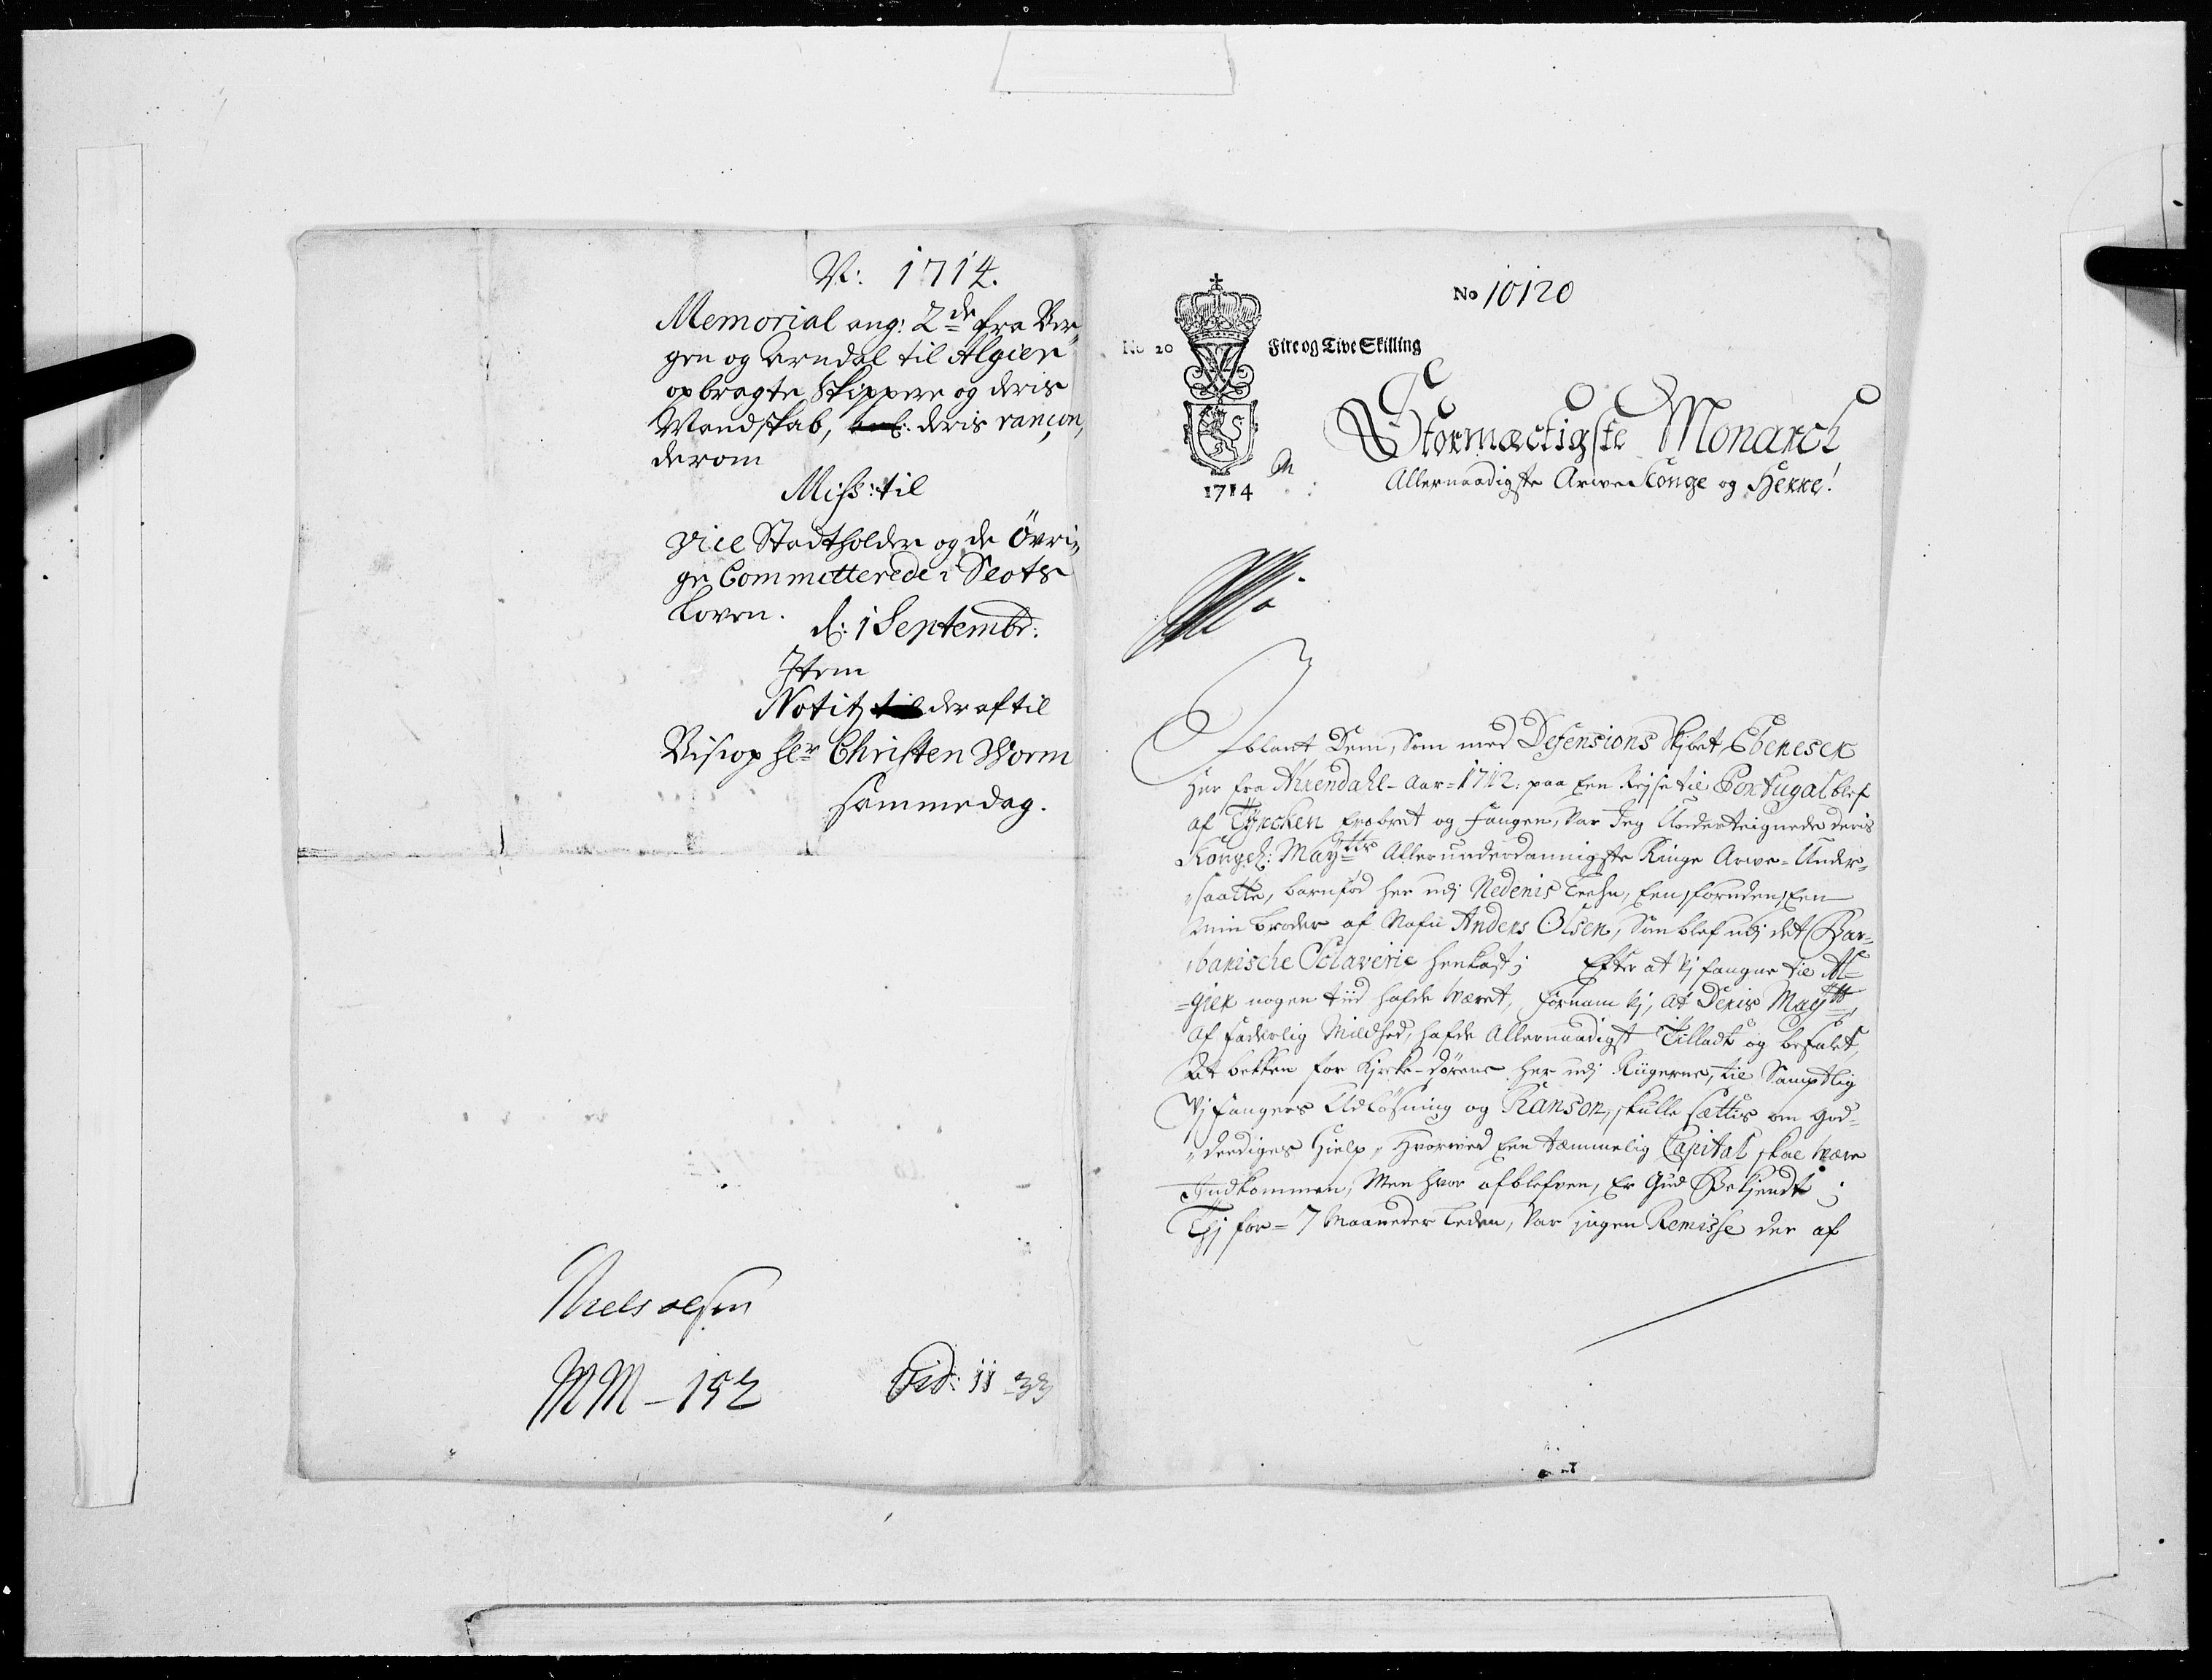 N: 1714.
Memorial ang: 2de fra Ber,,
gen og Arndal til Algier
opbragte Skippere og deris
Mandskab, deris rançon,
derom
Miss: til
Vice Stadtholder og de Övri,,
ge Committerede i Slots
Loven.
d: 1 Septembr:
Item
Notitz der af til
Biscop Hr Christen Worm
samme dag.
Niels olsen
MM - 152
Fid: 11 - 33
No 10120
No 20
Fire og Tive Skilling
1714
Stormæctigste Monarch
Allernaadigste Arwe Konge og Herre!
Jblant Dem, Som med Defensions Skibet Ebeneser
her fra Ahrendahl - Aar = 1712: paa Een Rejse til Portugal blef
af Tyrcken Erobret og Fangen, Var Jeg Underteignede deris
Kongel: Maytts Allerunderdannigste Ringe Arwe-Under,,
saatte, barnfød her udj Nedenis Leehn, Een, foruden Een
Min broder af Nafn Anders Olsen, Som blef udj det Bar,,
barische Sclaverie henkast; Efter at Vj fangne til Al=
=gier nogen tiid hafde Været, fornam Vj, at Deris Maytt
af faderlig Mildhed, hafde Allernaadigst Tilladt og befalet,
At bekken for Kircke-dørene her udj Riigerne, til Samptlig
Vj fangers Udløsning og Ranson, skulle sættis om God=
,,deediges Hielp, hvorved Een tæmmelig Capital skal være
Jndkommen, Men hvor afblefven, Er Gud Bekjendt;
Thj for = 7 Maaneder leden, Var jngen Remisse der af